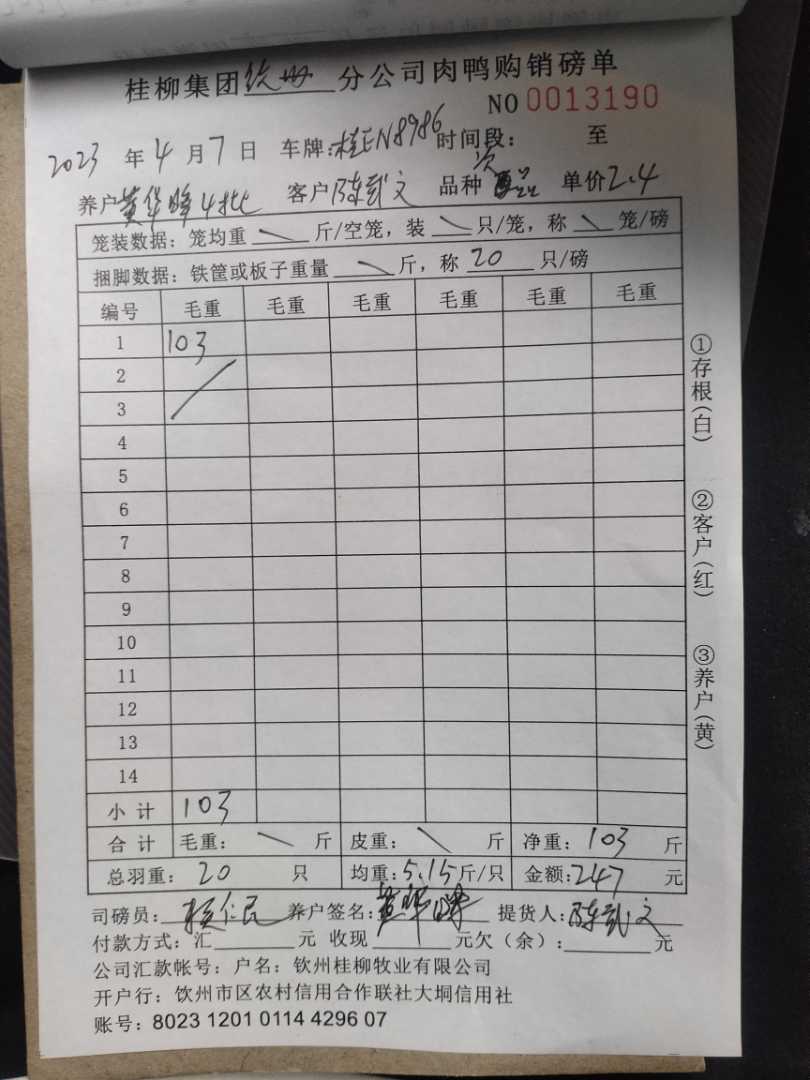 桂柳集团钦州分公司肉鸭购销磅单
NO 0013190
2023年4月7日 车牌:桂EN8986 时间段: 至
养户黄华峰4批 客户陈武文 品种次品 单价2.4
笼装数据: 笼均重 \ 斤/空笼, 装 \ 只/笼, 称 \ 笼/磅
捆脚数据: 铁筐或板子重量 \ 斤, 称 20 只/磅
编号 毛重 毛重 毛重 毛重 毛重 毛重
1 103
2
3
4
5
6
7
8
9
10
11
12
13
14
小计 103
合计 毛重: \ 斤 皮重: \ 斤 净重: 103 斤
总羽重: 20 只 均重: 5.15斤/只 金额: 247 元
司磅员: 仁民 养户签名: 黄华峰 提货人: 陈武文
付款方式: 汇 元 收现 元欠(余): 元
公司汇款帐号: 户名: 钦州桂柳牧业有限公司
开户行: 饮州市区农村信用合作联社大垌信用社
账号: 8023 1201 0114 4296 07
①存根(白)
②客户(红)
③养户(黄)